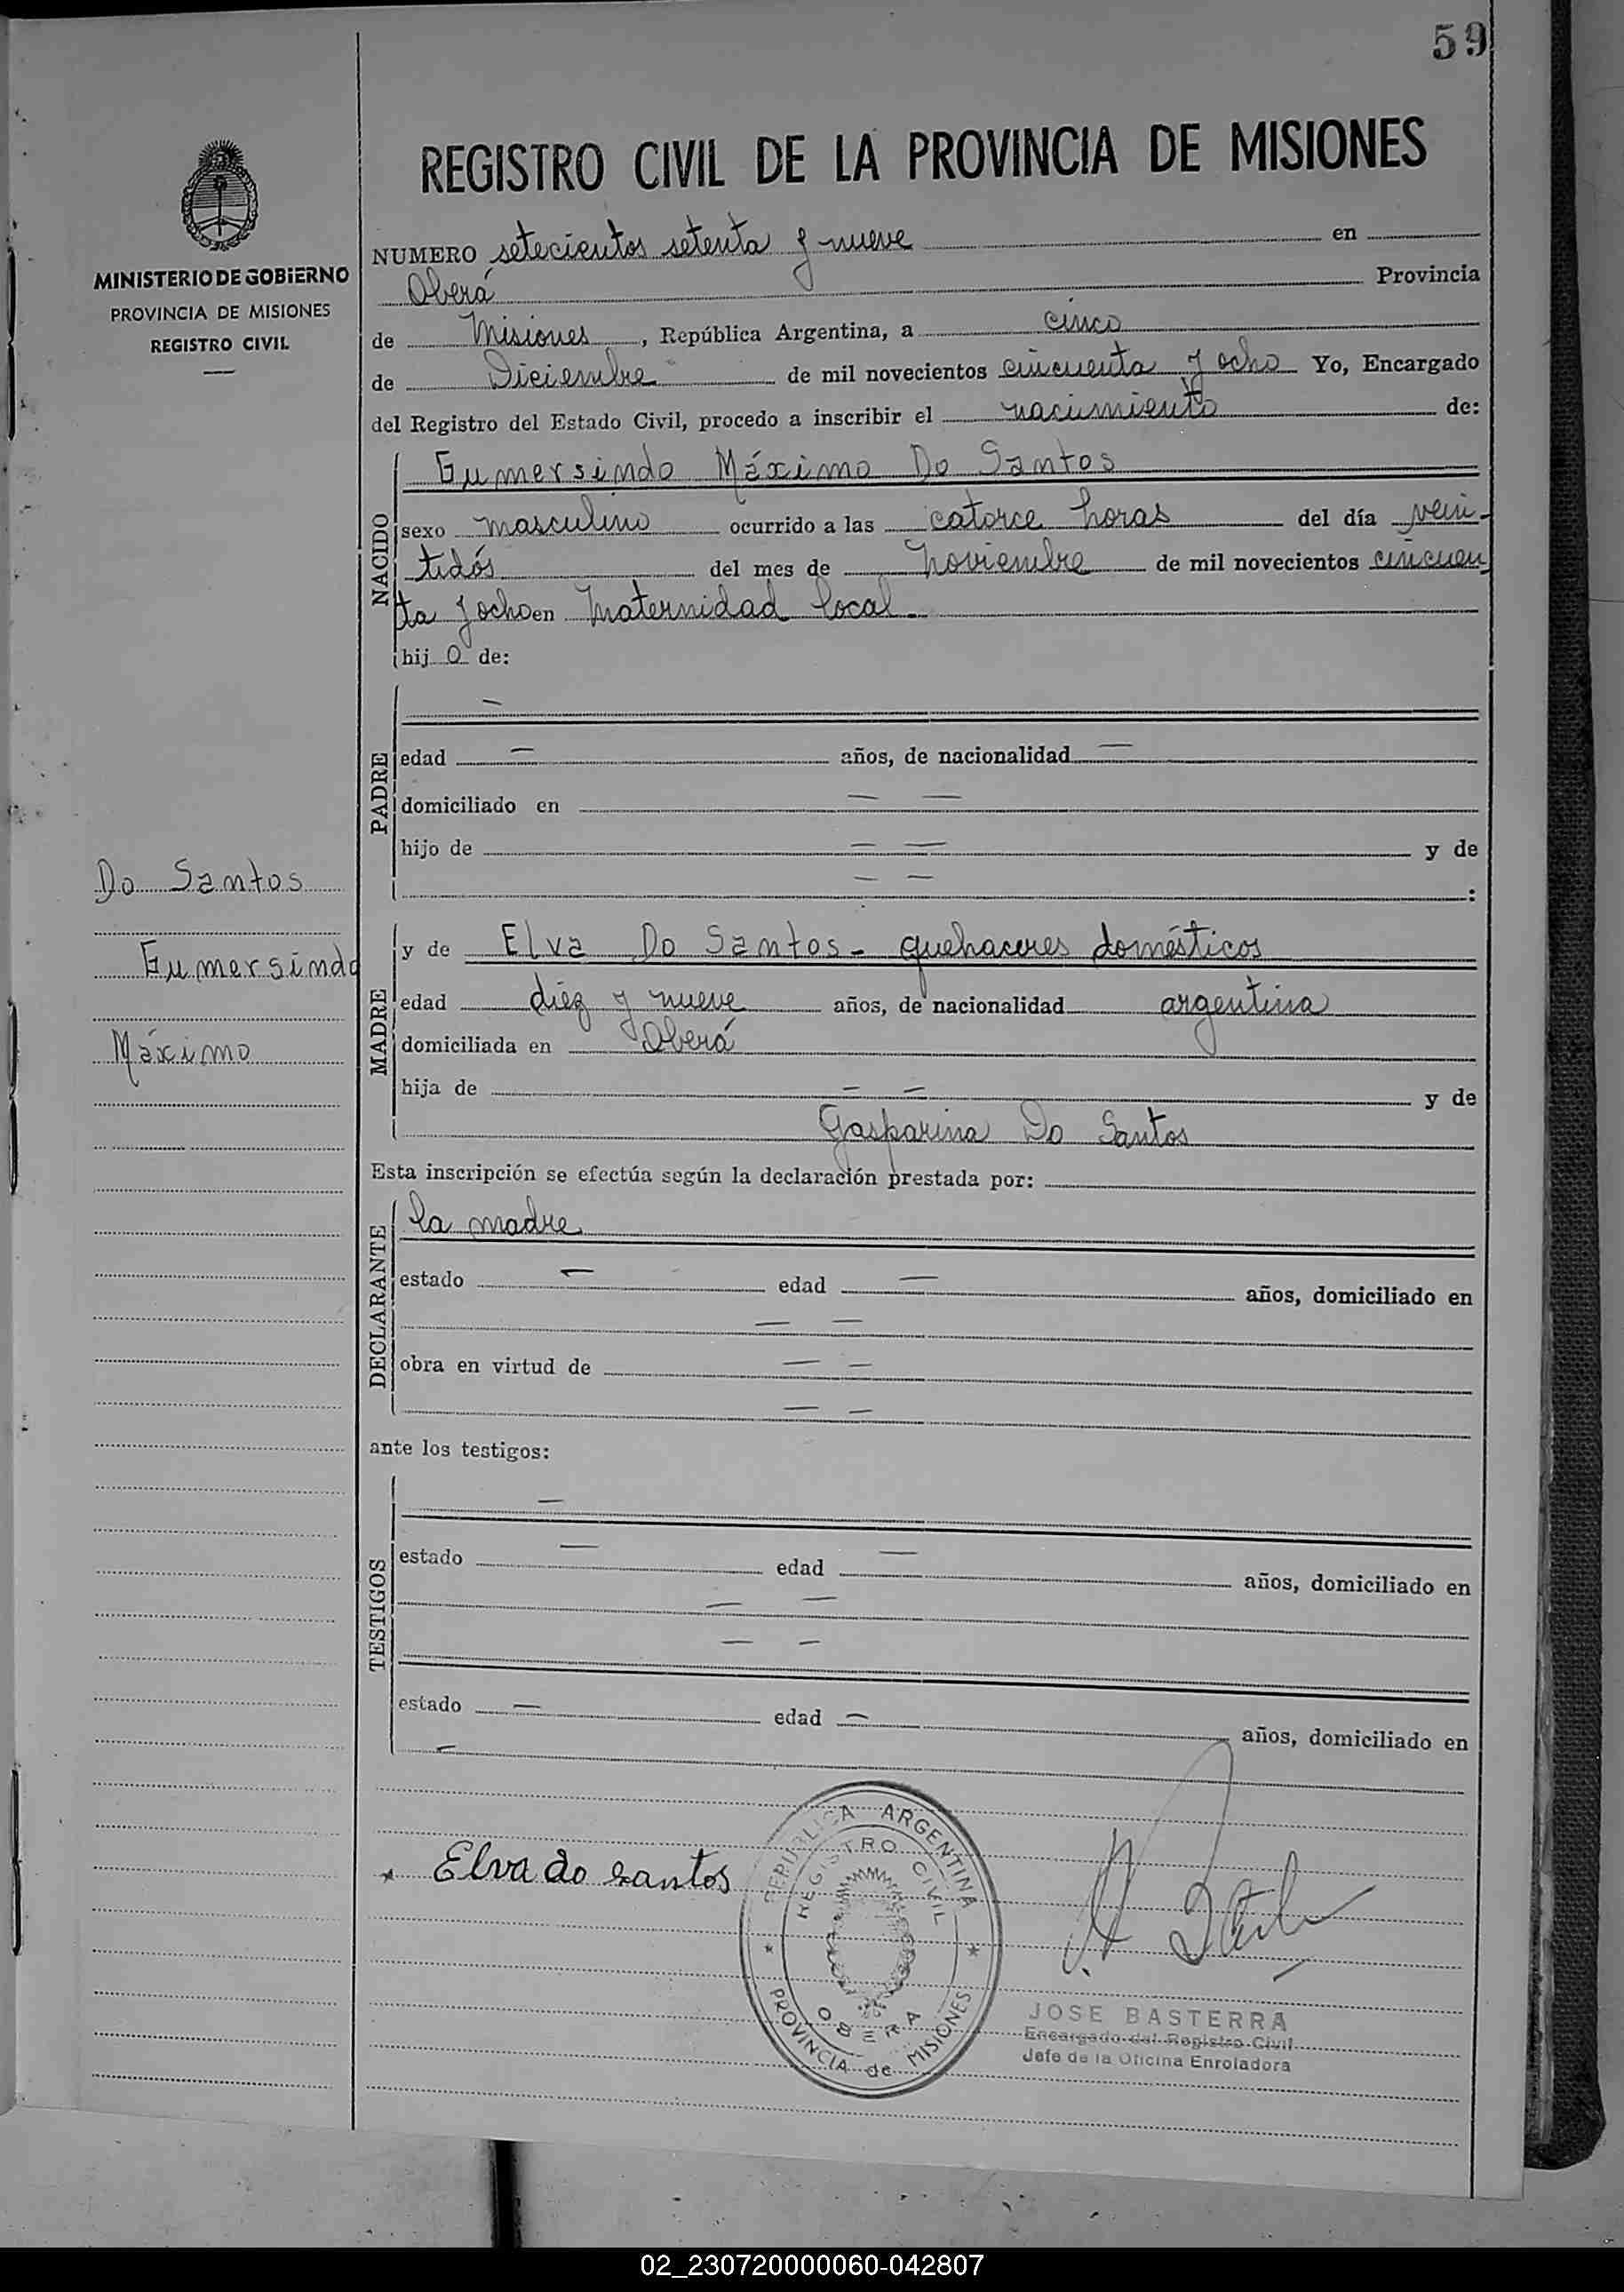 59
REGISTRO CIVIL DE LA PROVINCIA DE MISIONES
MINISTERIO DE GOBIERNO
PROVINCIA DE MISIONES
REGISTRO CIVIL
NUMERO setecientos setenta y nueve en
Oberá Provincia
de Misiones, República Argentina, a cinco
de Diciembre de mil novecientos cincuenta y ocho Yo, Encargado
del Registro del Estado Civil, procedo a inscribir el nacimiento de:
NACIDO
Gumersindo Máximo Do Santos
sexo masculino ocurrido a las catorce horas del día vein-
tidós del mes de Noviembre de mil novecientos cincuen
ta y ocho en Maternidad local.-
hijo de:
PADRE
—
edad — años, de nacionalidad —
domiciliado en — —
hijo de — — y de
— — :
Do Santos
Gumersindo
Máximo
MADRE
y de Elva Do Santos - quehaceres domésticos
edad diez y nueve años, de nacionalidad argentina
domiciliada en Oberá
hija de — — y de
Gasparina Do Santos
Esta inscripción se efectúa según la declaración prestada por:
DECLARANTE
la madre
estado — edad — años, domiciliado en
— —
obra en virtud de — —
— —
ante los testigos:
TESTIGOS
—
estado — edad — años, domiciliado en
— —
— —
estado — edad — años, domiciliado en
—
Elva do santos
REPUBLICA ARGENTINA
REGISTRO CIVIL
OBERA
PROVINCIA de MISIONES
JOSE BASTERRA
Encargado del Registro Civil
Jefe de la Oficina Enroladora
02_230720000060-042807